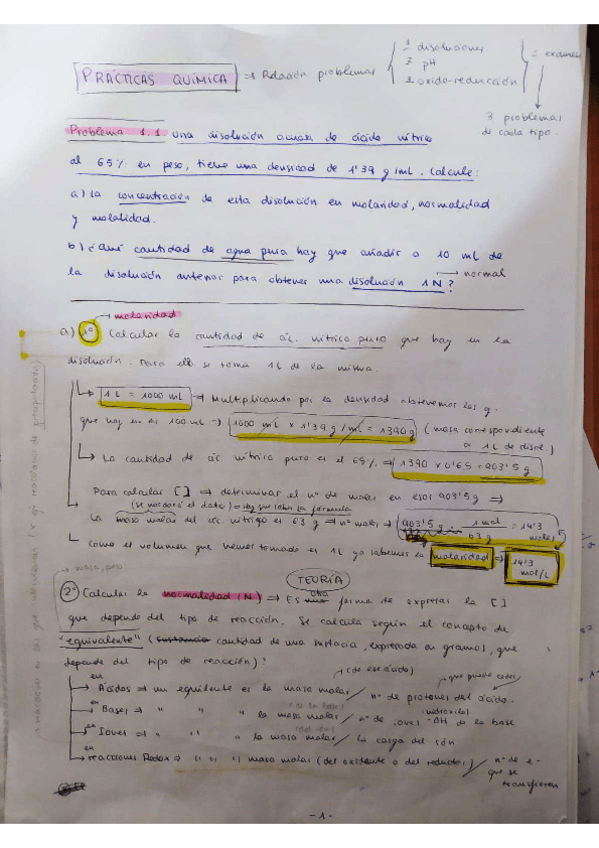 PRÁCTICAS QUÍMICA => Relación problemas
1 disoluciones
2 pH
3 oxido-reducción
= examen
3 problemas
de cada tipo.
Problema 1.1 Una disolución acuosa de ácido nítrico
al 65% en peso, tiene una densidad de 1'39 g/mL. Calcule:
a) La concentración de esta disolución en molaridad, normalidad
y molalidad.
b) ¿Qué cantidad de agua pura hay que añadir a 10 mL de
la disolución anterior para obtener una disolución 1N?
→ normal
→ molaridad
a) 1º Calcular la cantidad de ác. nítrico puro que hay en la
disolución. Para ello se toma 1L de la misma.
1L = 1000 mL => Multiplicando por la densidad obtenemos los g.
que hay en es 100 mL => 1000 mL x 1'39 g/mL = 1390 g (masa correspondiente
a 1L de disol.)
La cantidad de ác nítrico puro es el 65% => 1390 x 0'65 = 903'5 g
Para calcular [ ] => determinar el nº de moles en esos 903'5 g =>
(se nos dará el dato)
La masa molar del ác. nítrico es 63 g => nº moles => 903'5 g 1 mol / 63 g = 14'3 moles
Como el volumen que hemos tomado es 1L ya sabemos la molaridad => 14'3 mol/L
TEORÍA
2º Calcular la normalidad (N) => Es otra forma de expresar la [ ]
que depende del tipo de reacción. Se calcula según el concepto de
"equivalente" (cantidad de una sustancia, expresada en gramos, que
depende del tipo de reacción):
(de ese ácido)
que puede ceder
en Ácidos => un equivalente es la masa molar / nº de protones del ácido.
hidroxilos
en Bases => " " " la masa molar / nº de iones -OH de la base
en Iones => " " " la masa molar / la carga del ión
en reacciones Redox => " " " masa molar (del oxidante o del reductor) / nº de e-
que se
transfieren
-1-